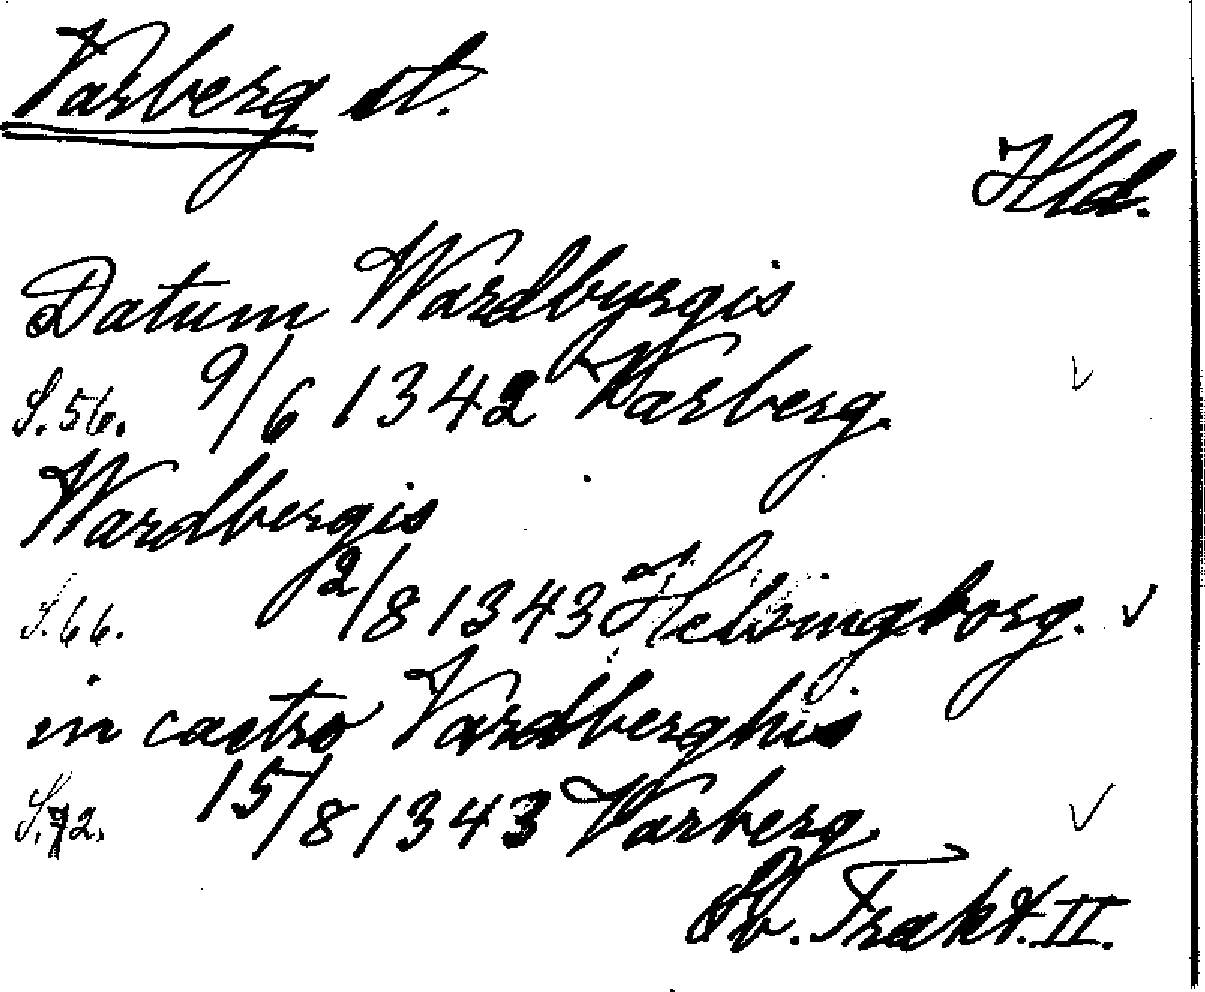 Varberg st.
Hld.
Datum Wardbyrgis
S.56. 9/6 1342 Varberg.
Wardbergis
S.66. 12/8 1343 Helsingborg.
in castro Vardberghis
S.72. 15/8 1343 Varberg.
Sv. Trakt. II.